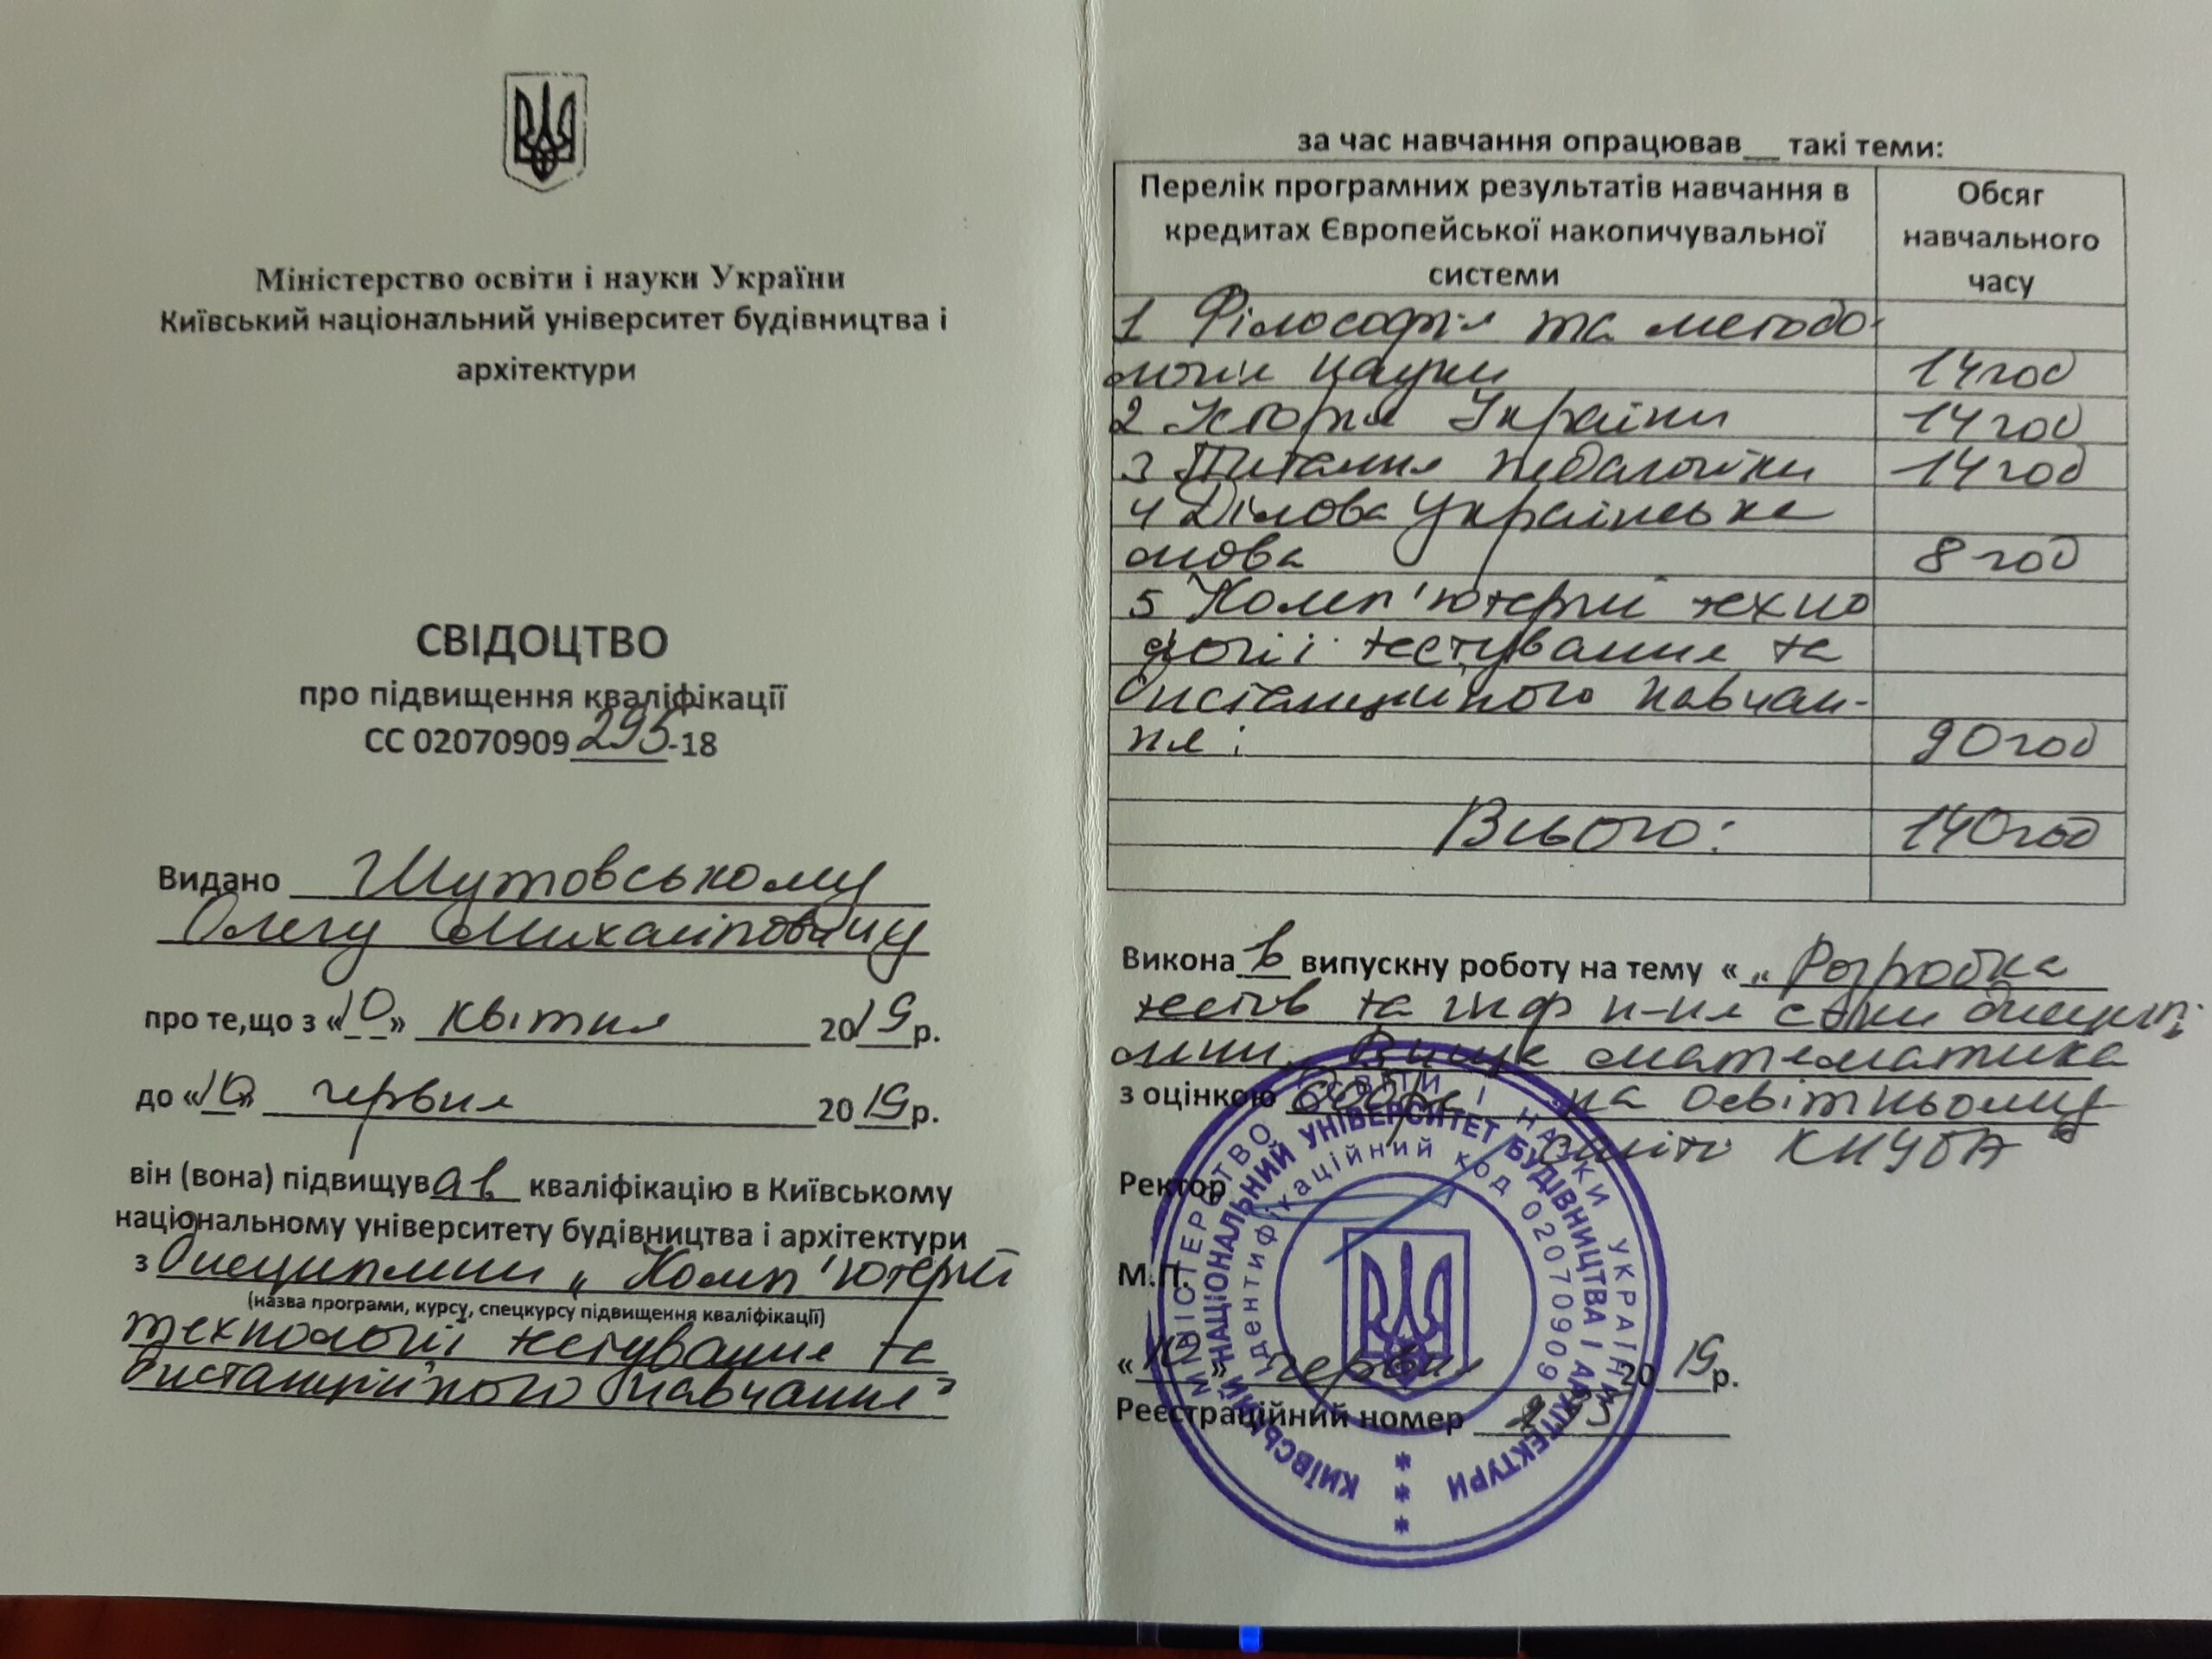 Міністерство освіти і науки України
Київський національний університет будівництва і
архітектури
СВІДОЦТВО
про підвищення кваліфікації
СС 02070909 295-18
Видано Шутовському
Олегу
про те,що з «10» квітня 2019р.
до «10» червня 2019р.
він (вона) підвищував кваліфікацію в Київському
національному університеті будівництва і архітектури
з дисципліни „Комп'ютерні
(назва програми, курсу, спецкурсу підвищення кваліфікації)
технології тестування та
дистанційного навчання"
за час навчання опрацював__ такі теми:
Перелік програмних результатів навчання в
кредитах Європейської накопичувальної
системи
Обсяг
навчального
часу
1 Філософія та методо-
логія науки 14 год
2 Історія України 14 год
3 Питання педагогіки 14 год
4 Ділова українська
мова 8 год
5 Комп'ютерні техно
логії тестування та
дистанційного навчан-
ня: 90 год
Всього: 140 год
Викона в випускну роботу на тему « „Розробка
тестів та н-ня дисцип
ліни Вища математика
з оцінкою добре на освітньому
сайті КНУБА
Ректор
М.П.
«10» червня 2019р.
Реєстраційний номер 295
МІНІСТЕРСТВО ОСВІТИ І НАУКИ УКРАЇНИ
КИЇВСЬКИЙ НАЦІОНАЛЬНИЙ УНІВЕРСИТЕТ БУДІВНИЦТВА І АРХІТЕКТУРИ
Ідентифікаційний код 02070909